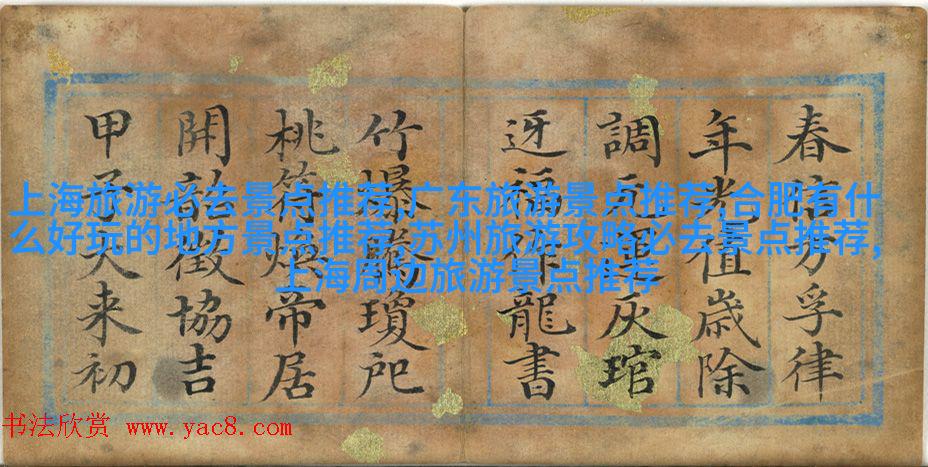 春方孚律
年光值歲除
調元灰琯
迓福龍書
竹爆瓊戺
桃符煥帝居
開韶徵協吉
甲子來初
上海旅游必去景点推荐,广东旅游景点推荐,合肥有什
么好玩的地方景点推荐,苏州旅游攻略必去景点推荐,
上海周边旅游景点推荐
书法欣赏 www.yac8.com